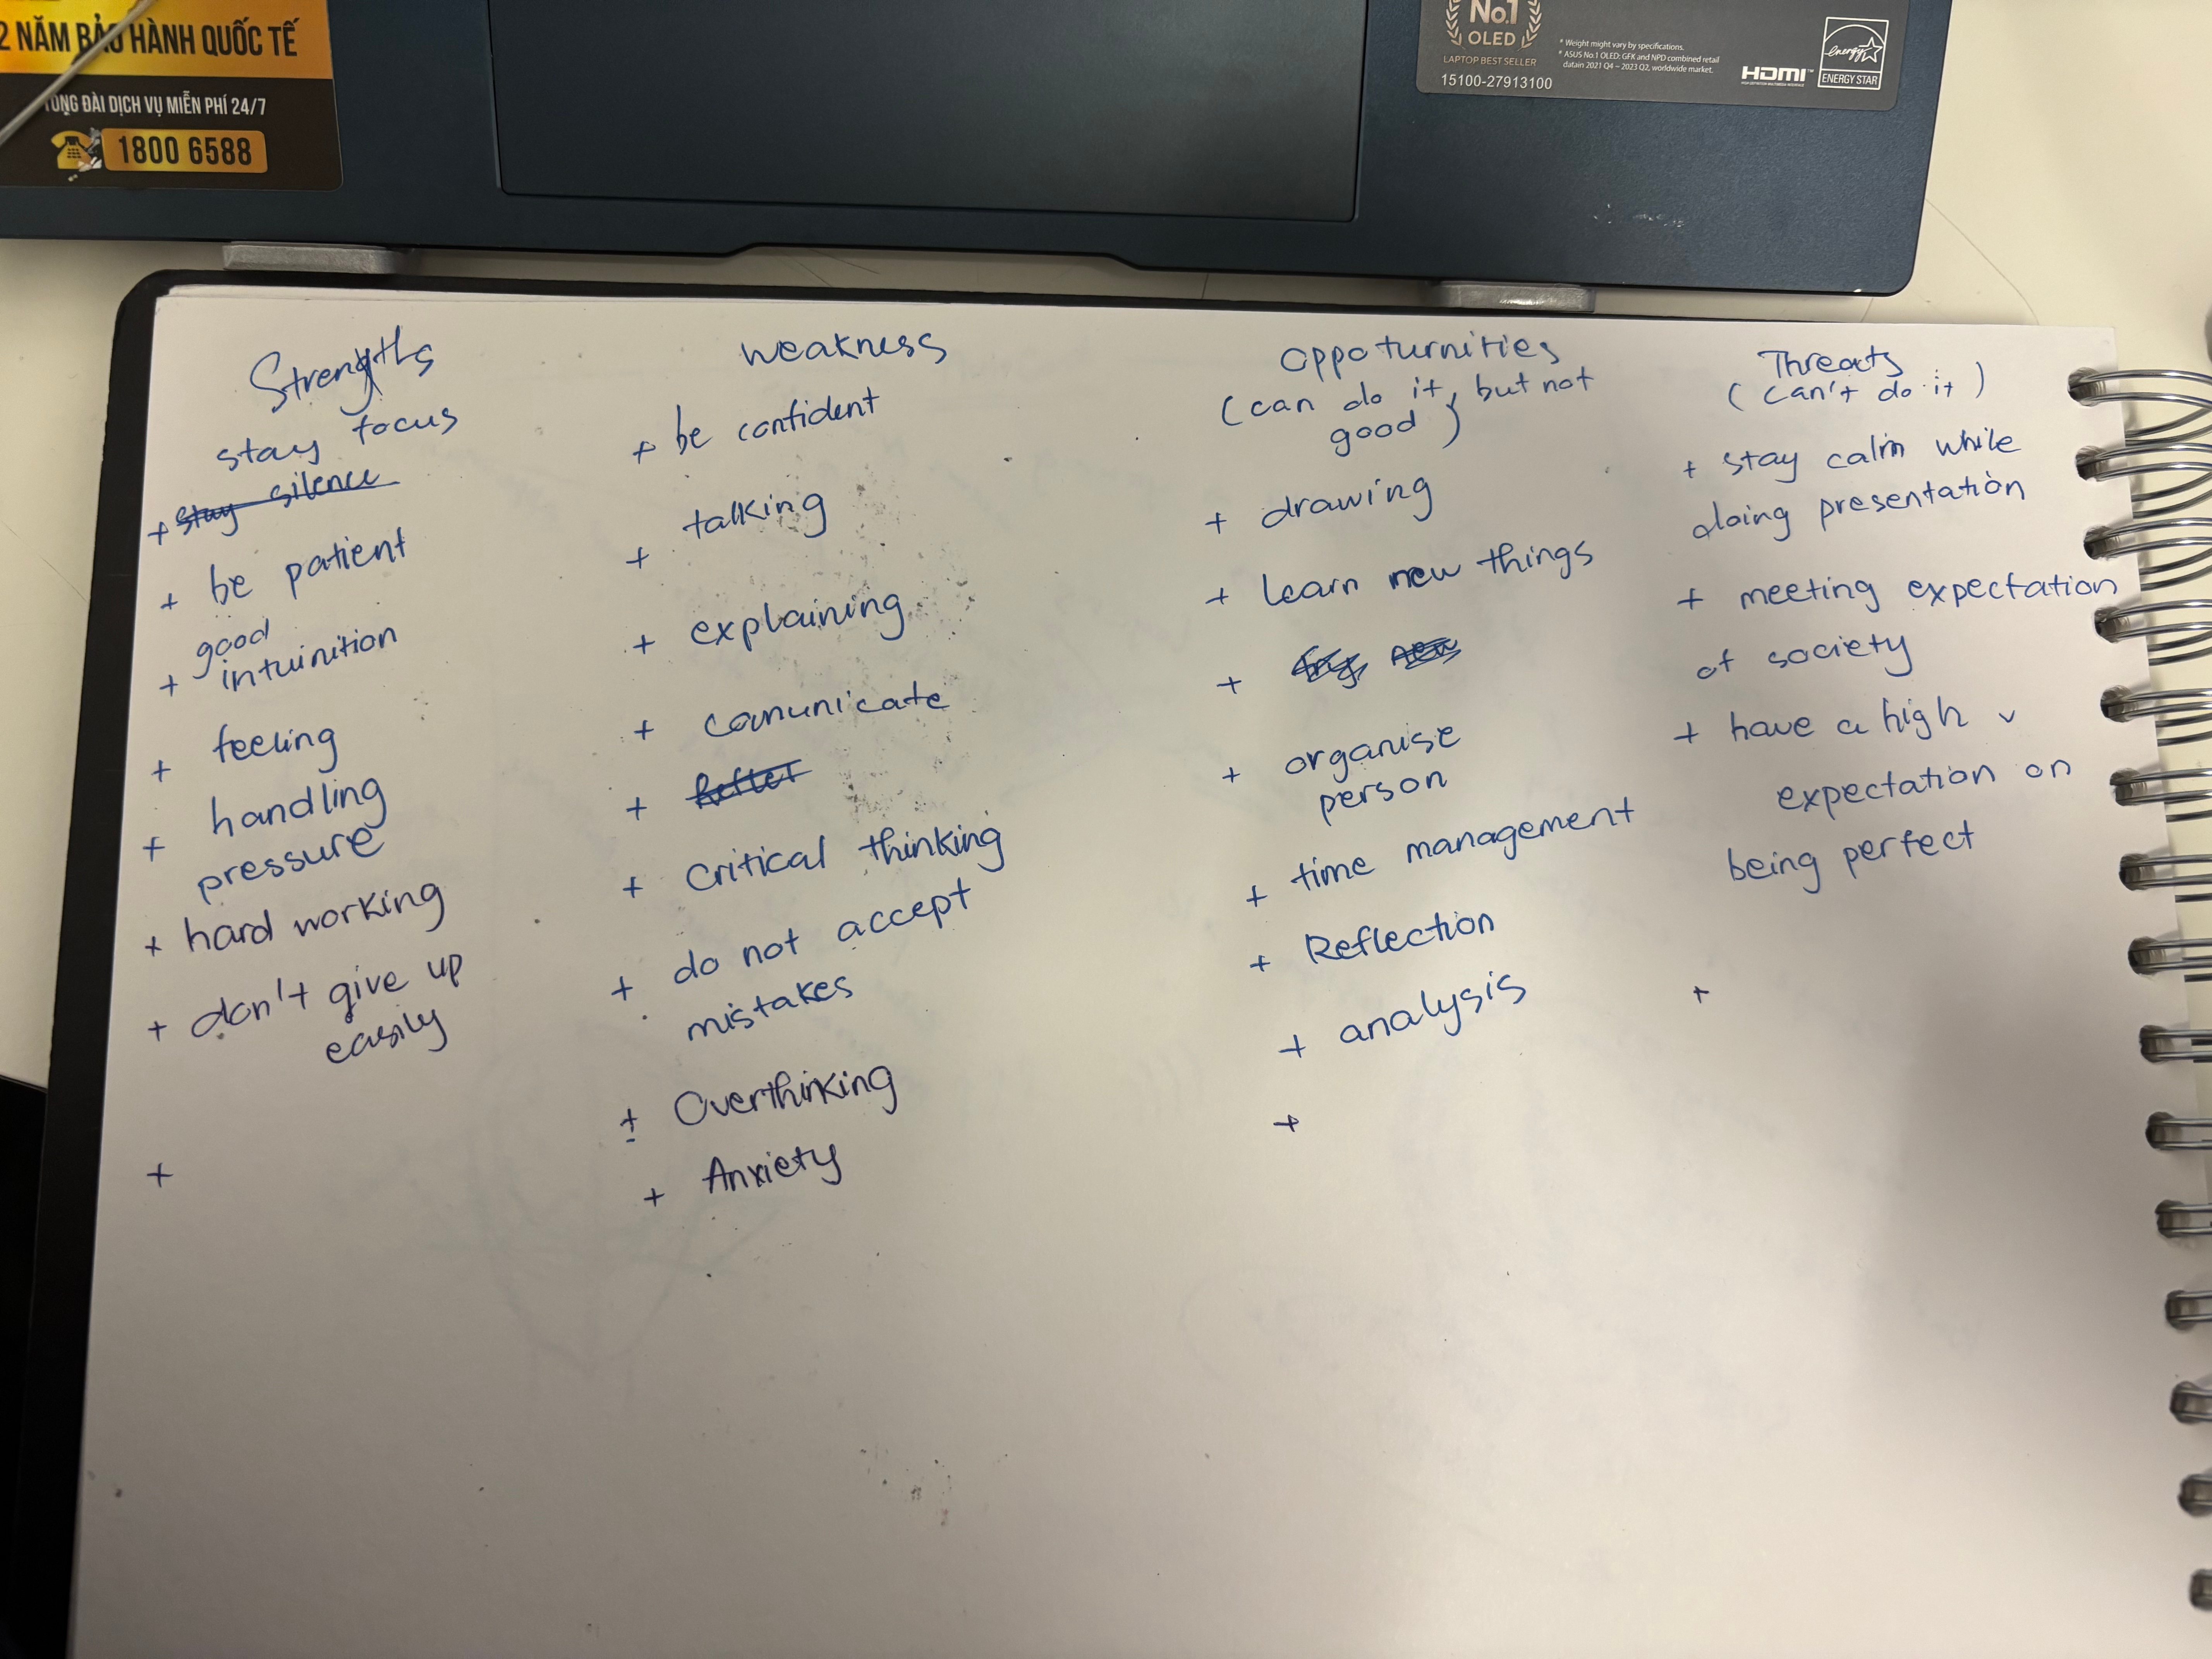 2 NĂM BẢO HÀNH QUỐC TẾ
TỔNG ĐÀI DỊCH VỤ MIỄN PHÍ 24/7
1800 6588
No.1
OLED
LAPTOP BEST SELLER
15100-27913100
* Weight might vary by specifications.
* ASUS No.1 OLED: GFK and NPD combined retail
datain 2021 Q4 ~ 2023 Q2, worldwide market.
HDMI
energy
ENERGY STAR
Strengths
stay focus
+ stay silence
+ be patient
good
+ intuinition
+ feeling
+ handling
pressure
+ hard working
+ don't give up
easily
+
weakness
+ be confident
+ talking
+ explaining
+ comunicate
+
+ critical thinking
+ do not accept
mistakes
+ Overthinking
+ Anxiety
oppoturnities
(can do it, but not
good)
+ drawing
+ learn new things
+ try new
+ organise
person
+ time management
+ Reflection
+ analysis
+
Threats
(can't do it)
+ stay calm while
doing presentation
+ meeting expectation
of society
+ have a high
expectation on
being perfect
+